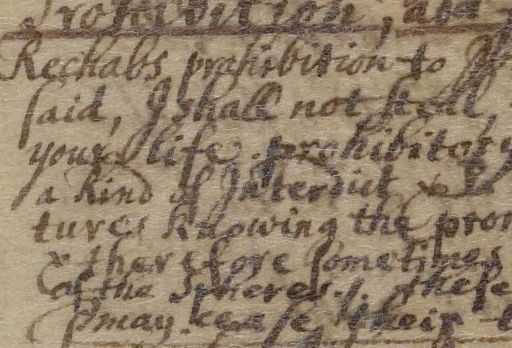 Prohibition, and
Rechabs prohibition to
said, I shall not steal,
your life. prohibitory
a kind of Interdict &
tures knowing the pro
& therefore sometimes
of the Spheres. these
may cease their